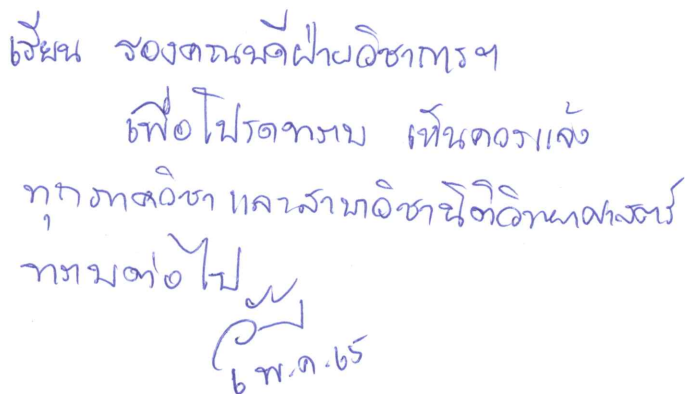 เรียน รองคณบดีฝ่ายวิชาการฯ
เพื่อโปรดทราบ เห็นควรแจ้ง
ทุกภาควิชา และสาขาวิชานิติวิทยาศาสตร์
ทราบต่อไป
6 พ.ค. 65